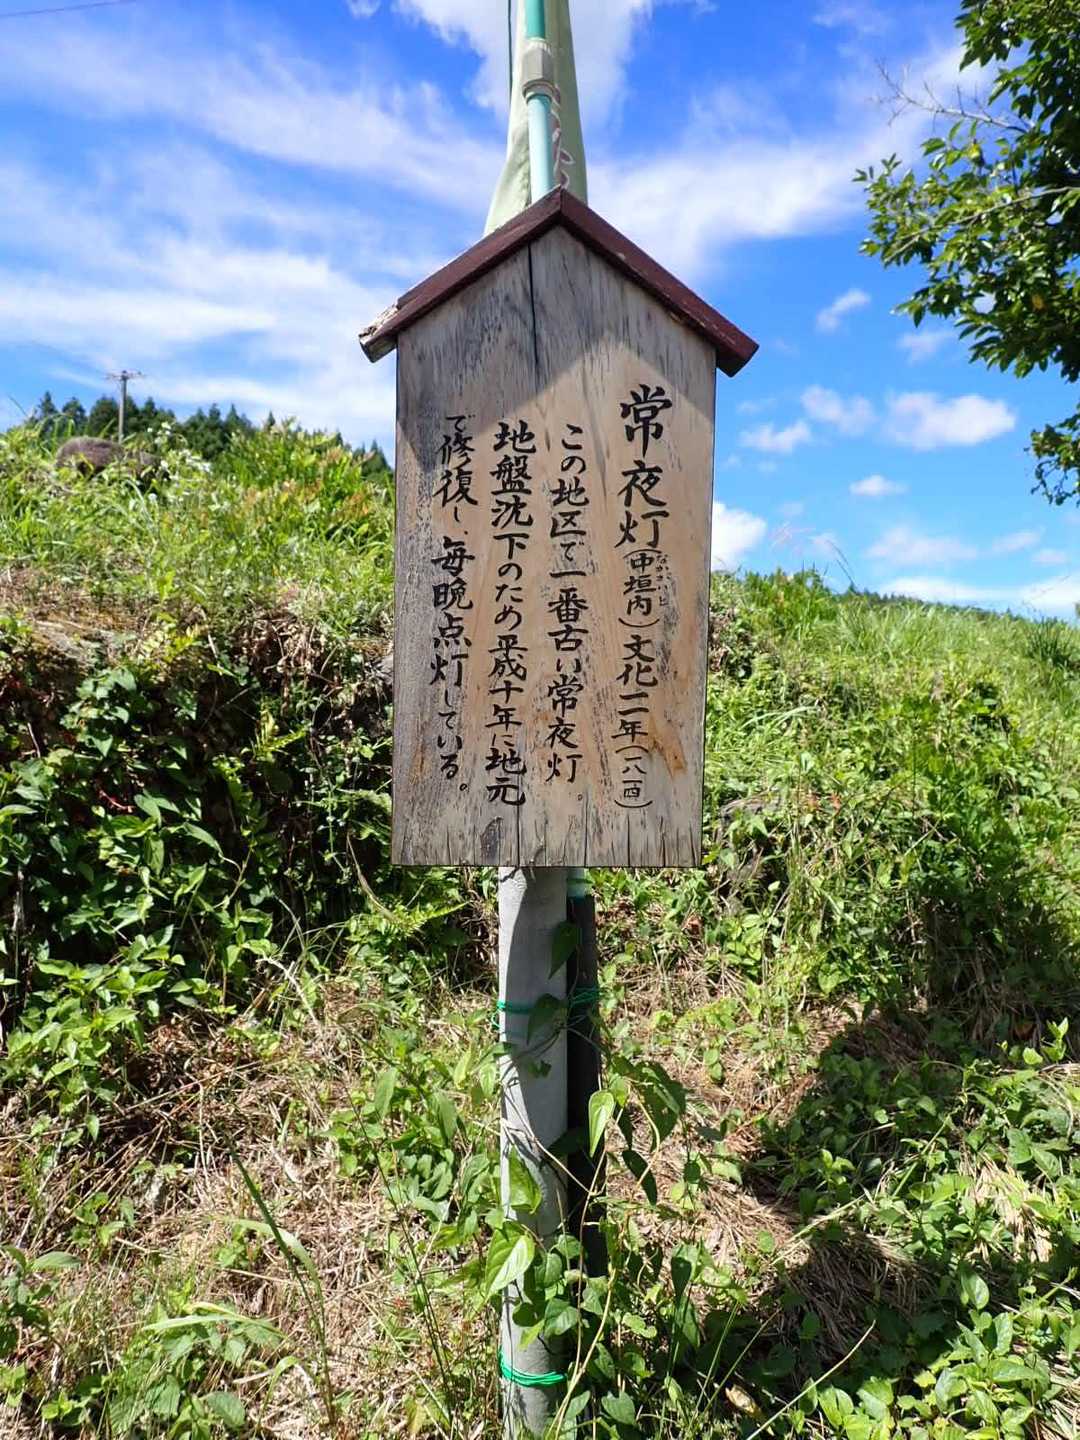 常夜灯(中垣内)文化一一年(一八一四)
なかがいと
この地区で一番古い常夜灯。
地盤沈下のため平成十年に地元
で修復し、毎晩点灯している。